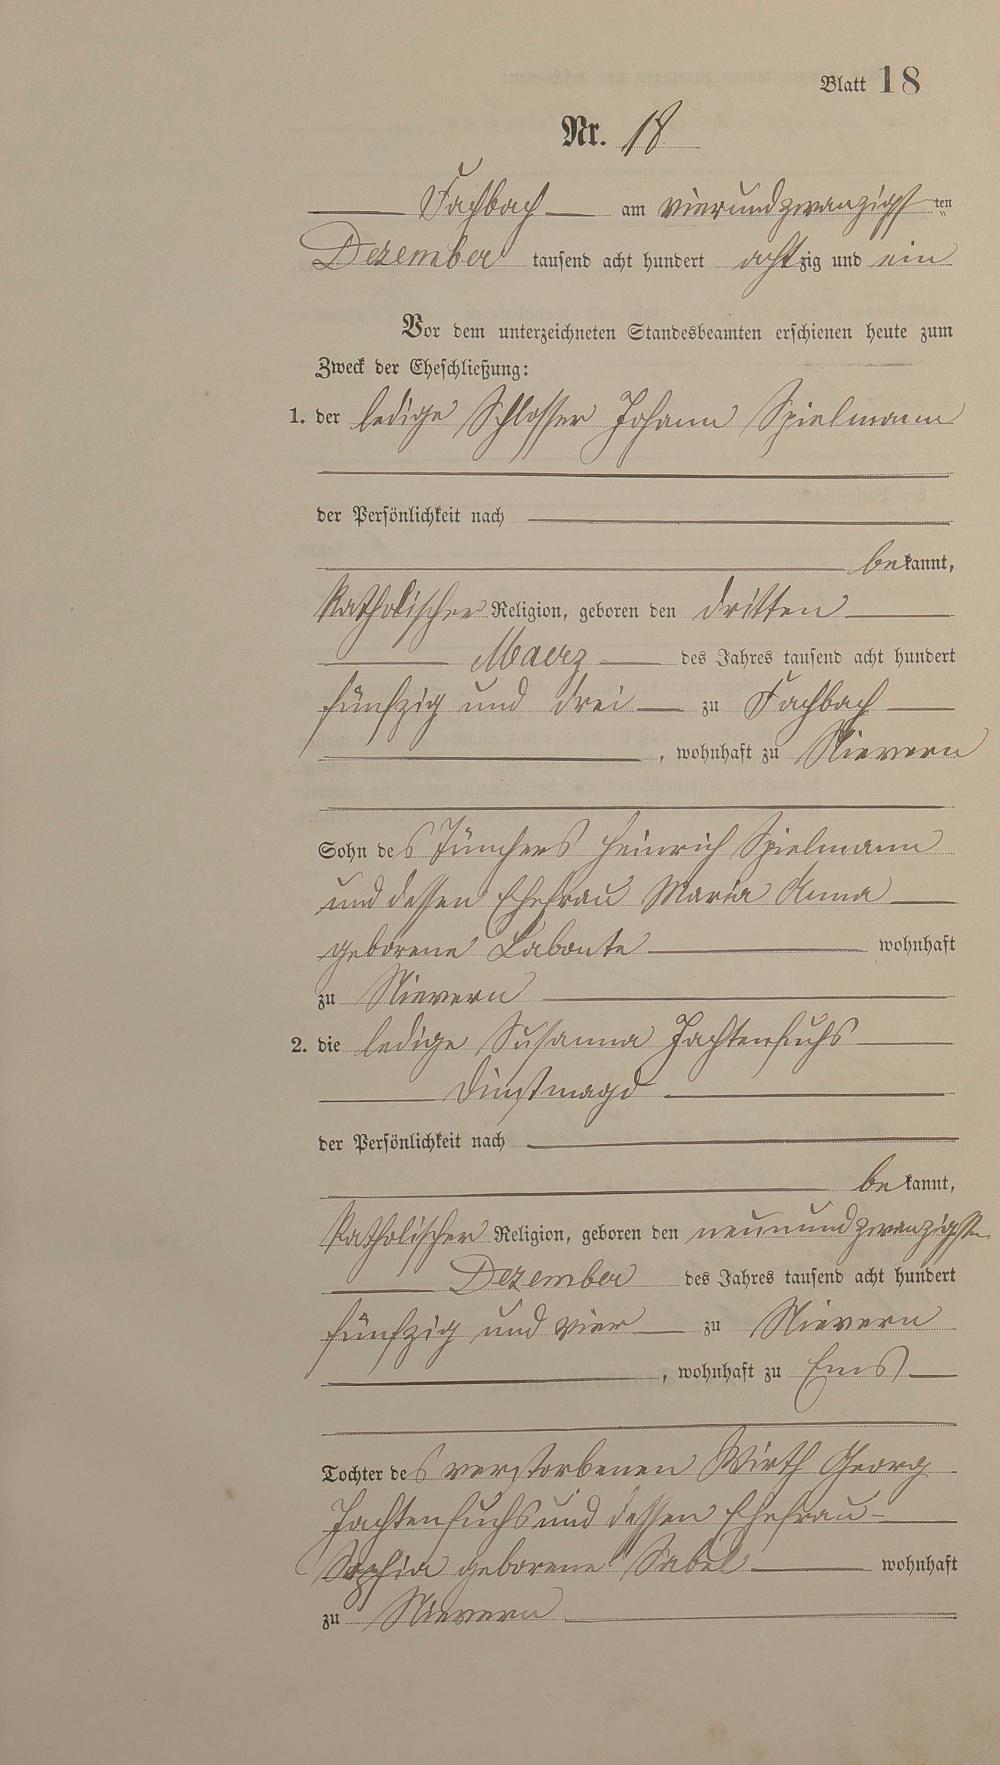 Blatt 18
Nr. 18
Fachbach am vierundzwanzigsten
Dezember tausend acht hundert achtzig und ein
Vor dem unterzeichneten Standesbeamten erschienen heute zum
Zweck der Eheschließung:
1. der ledige Schlosser Johann Spielmann
der Persönlichkeit nach
bekannt,
Katholischer Religion, geboren den dritten
Maerz des Jahres tausend acht hundert
fünfzig und drei zu Fachbach
, wohnhaft zu Nievern
Sohn des Tünchers Heinrich Spielmann
und dessen Ehefrau Maria Anna
geborene Labonte wohnhaft
zu Nievern
2. die ledige Susanna Jachtenfuchs
Dinstmagd
der Persönlichkeit nach
bekannt,
Katholischer Religion, geboren den neunundzwanzigsten
Dezember des Jahres tausend acht hundert
fünfzig und vier zu Nievern
, wohnhaft zu Ems
Tochter des verstorbenen Wirth Georg
Jachtenfuchs und dessen Ehefrau
Sophia geborene Sabel wohnhaft
zu Nievern